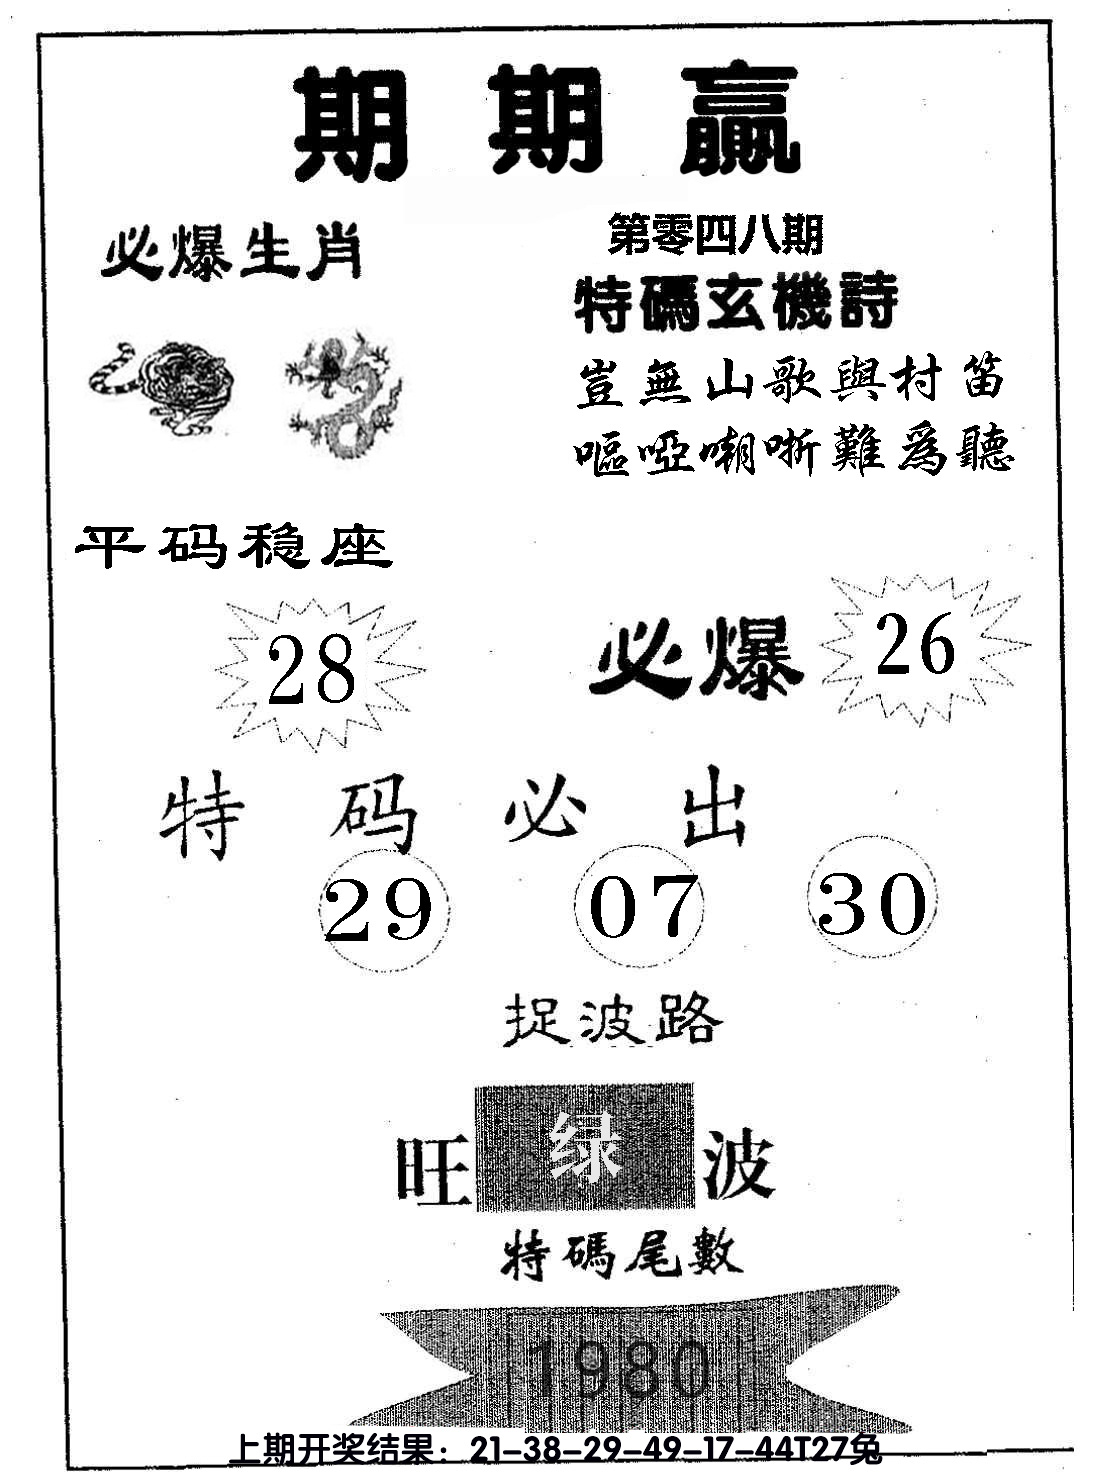 期期赢
必爆生肖
第零四八期
特碼玄機詩
豈無山歌與村笛
嘔啞嘲哳難爲聽
平码稳座
28
必爆 26
特码必出
29 07 30
捉波路
旺绿波
特碼尾數
1980
上期开奖结果：21-38-29-49-17-44T27兔